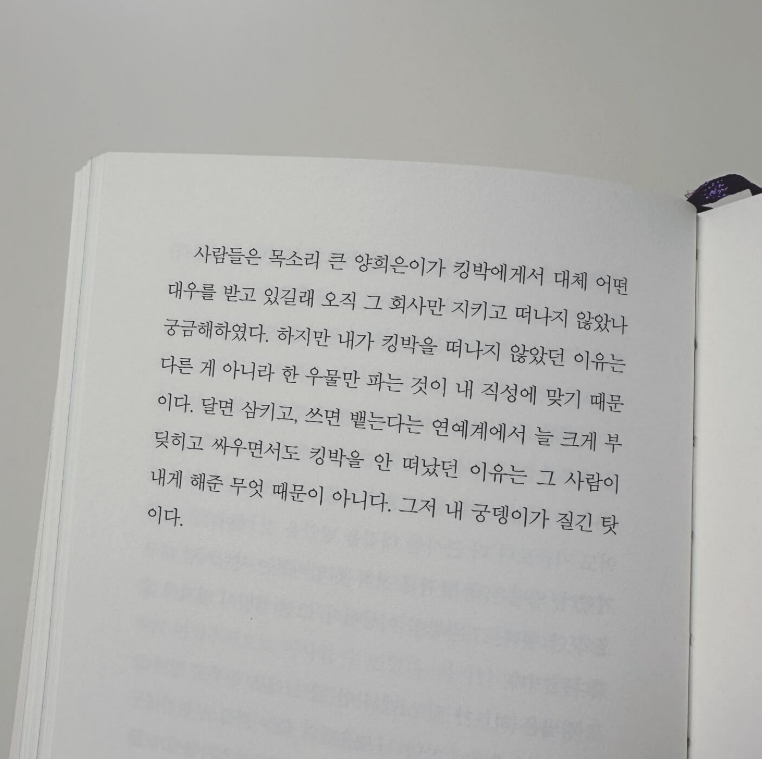 사람들은 목소리 큰 양희은이가 킹박에게서 대체 어떤
대우를 받고 있길래 오직 그 회사만 지키고 떠나지 않았나
궁금해하였다. 하지만 내가 킹박을 떠나지 않았던 이유는
다른 게 아니라 한 우물만 파는 것이 내 직성에 맞기 때문
이다. 달면 삼키고, 쓰면 뱉는다는 연예계에서 늘 크게 부
딪히고 싸우면서도 킹박을 안 떠났던 이유는 그 사람이
내게 해준 무엇 때문이 아니다. 그저 내 궁뎅이가 질긴 탓
이다.